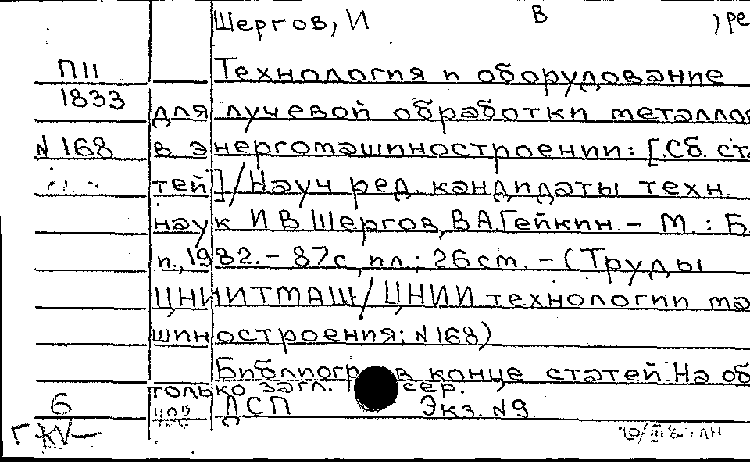 Шергов, И В ) ре
П11 Технология и оборудование
1833 для лучевой обработки металлов
№168 в энергомашиностроении: [Сб. ста
тей]/Науч ред. кандидаты техн.
наук И В Шергов, В А Гейкин – М. : Б.
и., 1982. – 87с, ил.; 26 см. – (Труды
ЦНИИТМАШ/ЦНИИ технологии ма
шиностроения; №168)
Библиогр в конце статей На об
только загл. сер.
6 ДСП Экз. №9